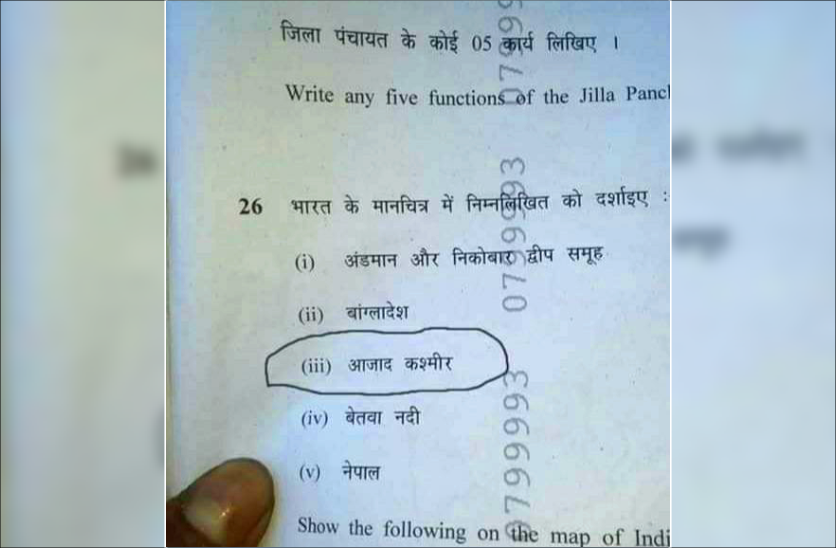 जिला पंचायत के कोई 05 कार्य लिखिए ।
Write any five functions of the Jilla
26 भारत के मानचित्र में निम्नलिखित को दर्शाइए :
(i) अंडमान और निकोबार द्वीप समूह
(ii) बांग्लादेश
(iii) आजाद कश्मीर
(iv) बेतवा नदी
(v) नेपाल
Show the following on the map of
07999993
07999993